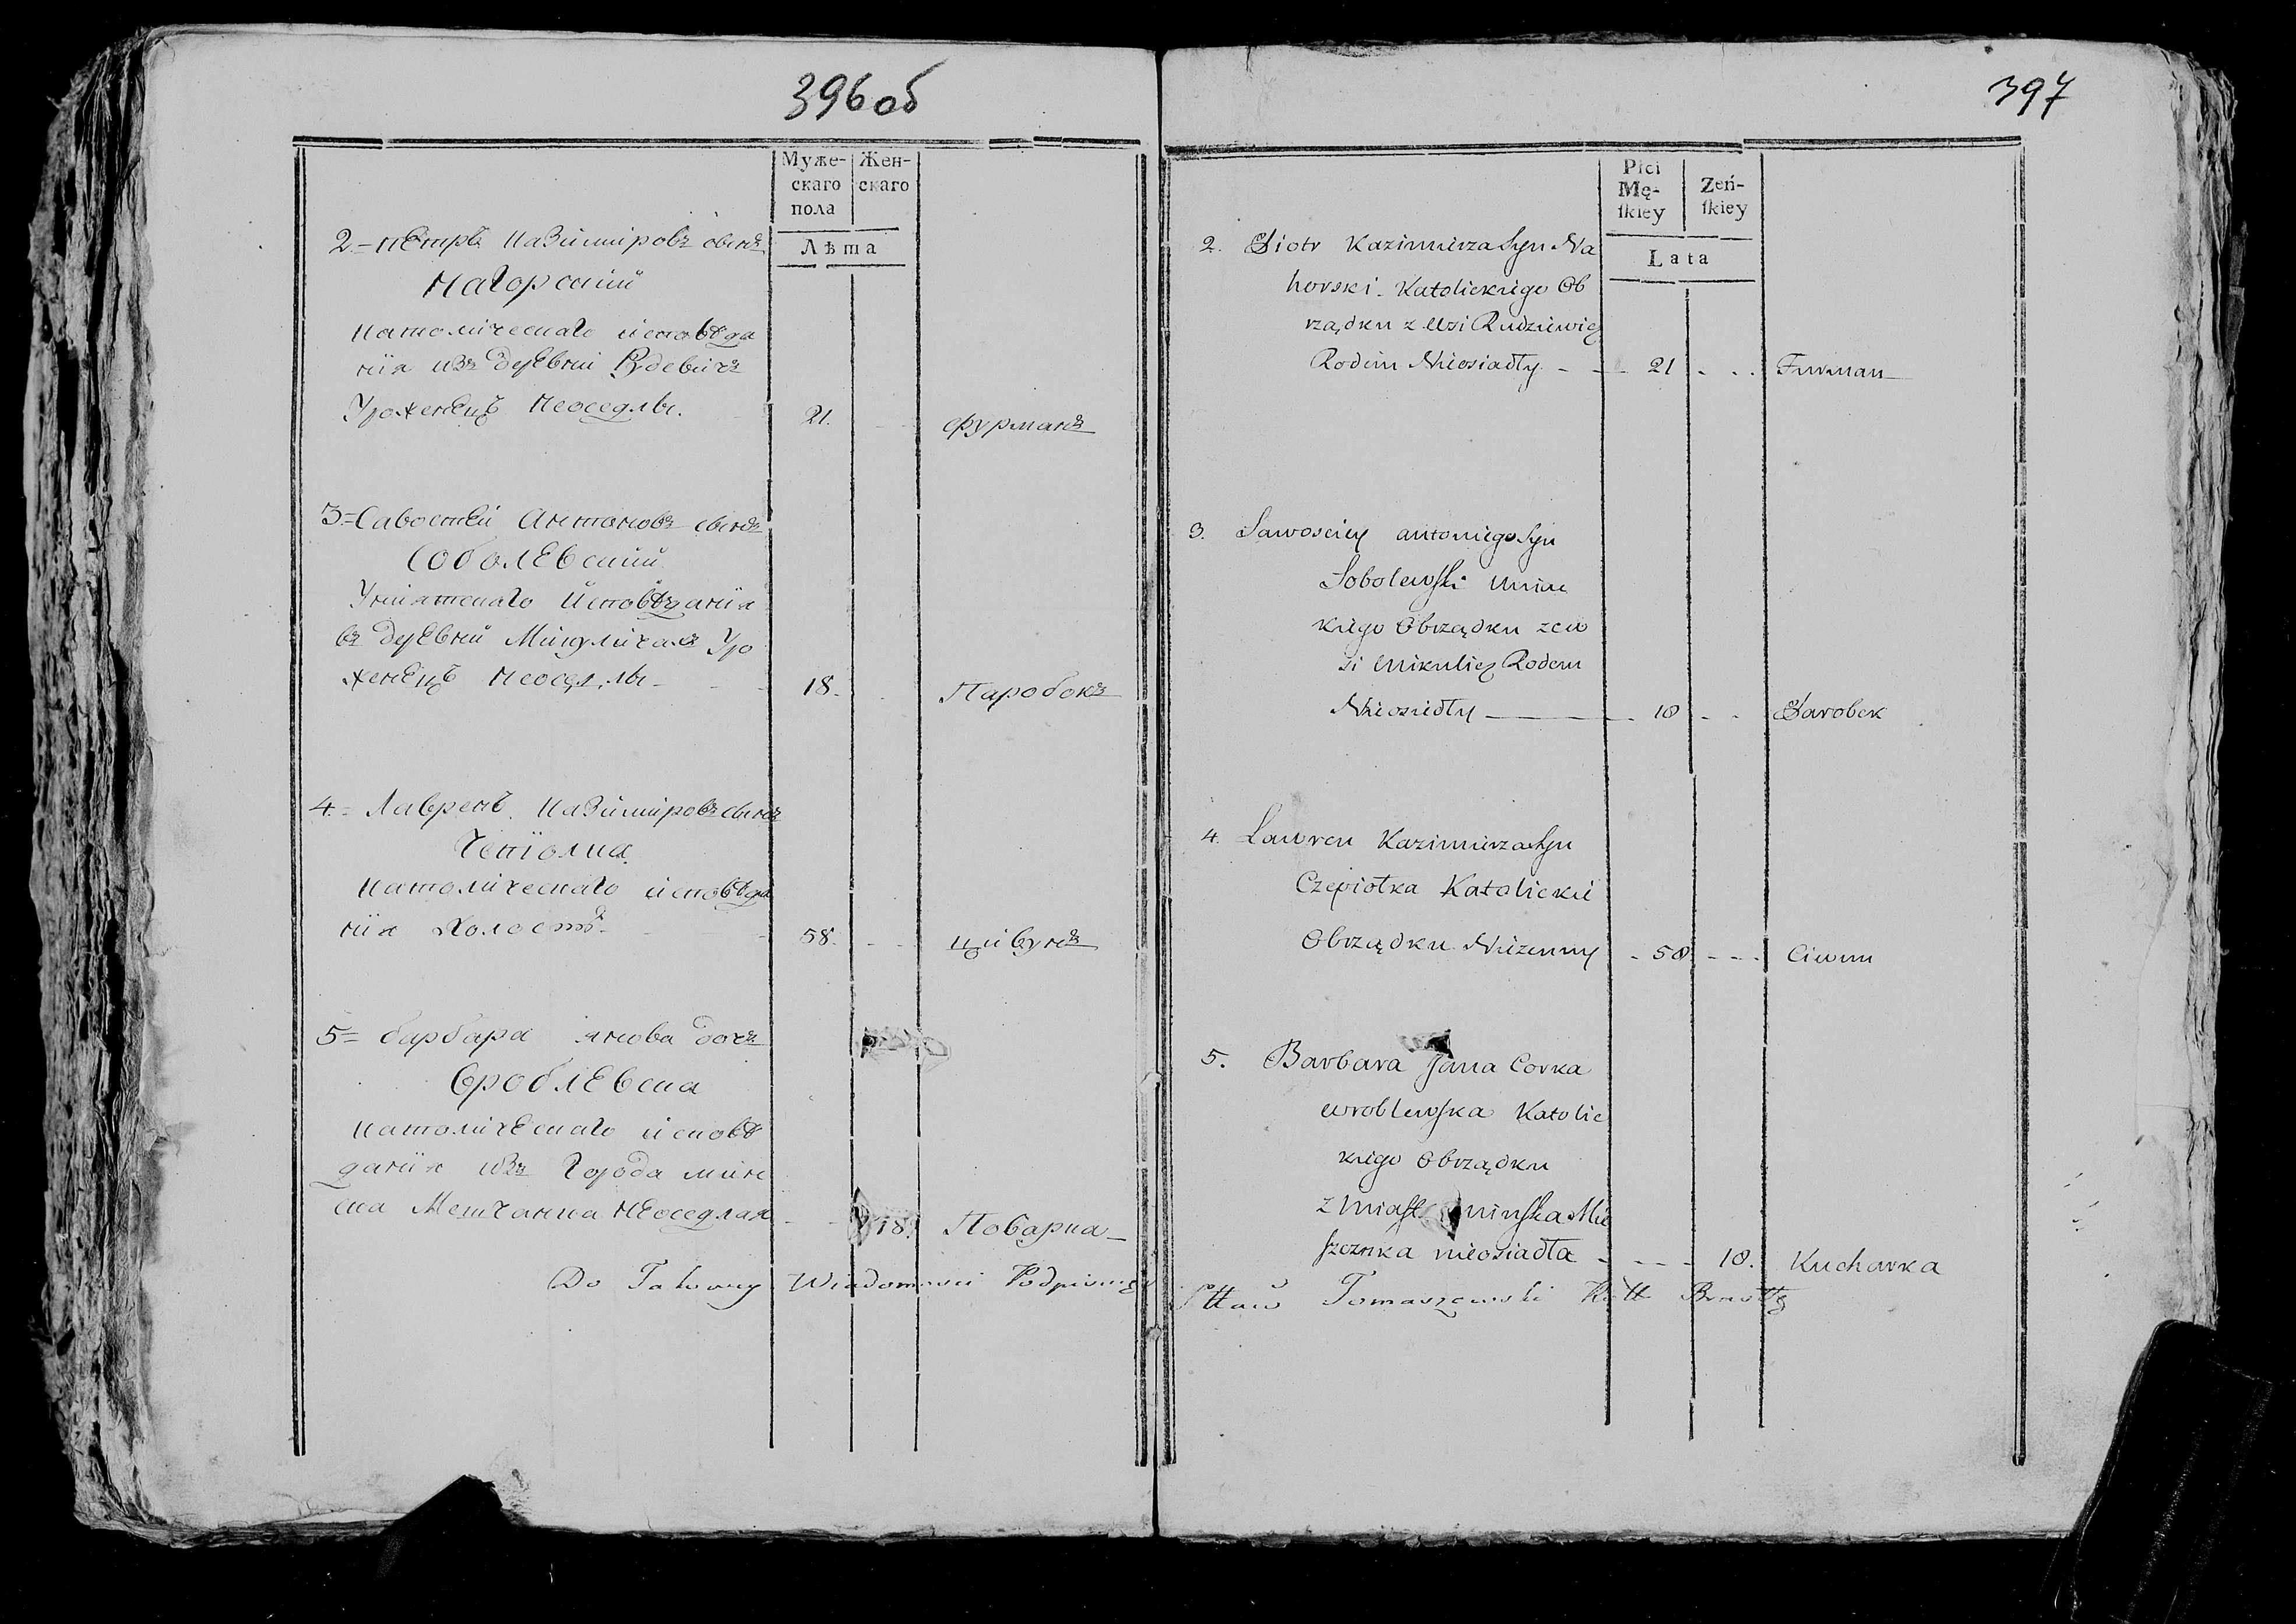 396 об
Муже-
скаго
пола
Жен-
скаго
Лѣта
2. = Пётръ Казимировъ сынъ
Нагорский
католическаго исповѣда
нія изъ деревни Рудевичъ
Уроженецъ неоседлы.
21.
фурманъ
3 = Савостей Антоновъ сынъ
Соболевский
Униятскаго исповѣданія
въ деревни Микуличахъ Уро
женецъ неоседлы
18.
Паробокъ
4. = Лаврень Казимировъ сынъ
Чепіолка
католическаго исповѣда
нія холостъ
58.
цивунъ
5 = барбара янова дочъ
Вроблевска
католическаго исповѣ
данія изъ города мин
ска Мещанка неоседлая
18.
Поварка
Do Takowey Wiadomosci Podpisuię
397
Płci
Mę-
ſkiey
Zeń-
ſkiey
Lata
2. Piotr Kazimierza Syn Na
horski Katolickiego Ob
rządku z Wsi Rudziewicz
Rodem Nieosiadły
21
Furman
3. Sawosciey antoniego Syn
Sobolewſki Unic
kiego Obrządku z w
si Mikulicz Rodem
Nieosiedły
18
Parobek
4. Lawren Kazimierza Syn
Czepiołka Katolickie
Obrządku Nieżenny
58
Ciwun
5. Barbara Jana Corka
wroblewſka Katolic
kiego Obrządku
z Miaſt minſka Mie
ſzcznka nieosiadła
18.
Kucharka
Tomaszewski